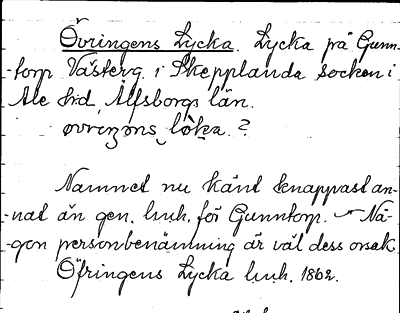 Övringens Lycka. Lycka på Gunn-
-torp Västerg. i Skepplanda socken i
Ale hd, Älfsborgs län.
øvrıŋəns løka. ?
Namnet nu känt knappast an-
-nat än gen. luh. för Gunntorp. Nå-
-gon personbenämning är väl dess orsak.
Öfringens Lycka luh. 1862.